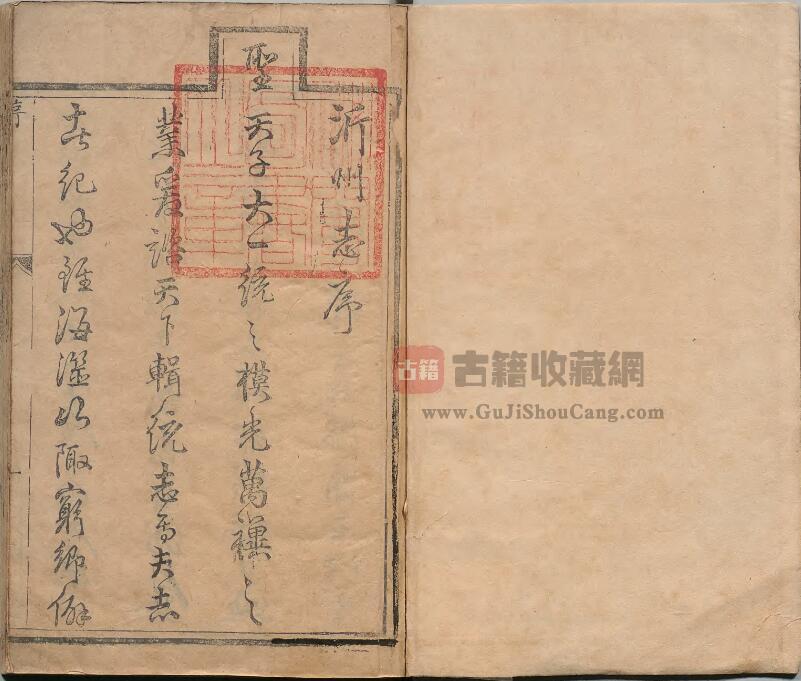 沂州志序
聖天子大一統之模光萬禩之
業爰詔天下輯統志焉夫志
者紀也雖海澨山陬窮鄉僻
序
古籍
古籍收藏網
www.GuJiShouCang.com